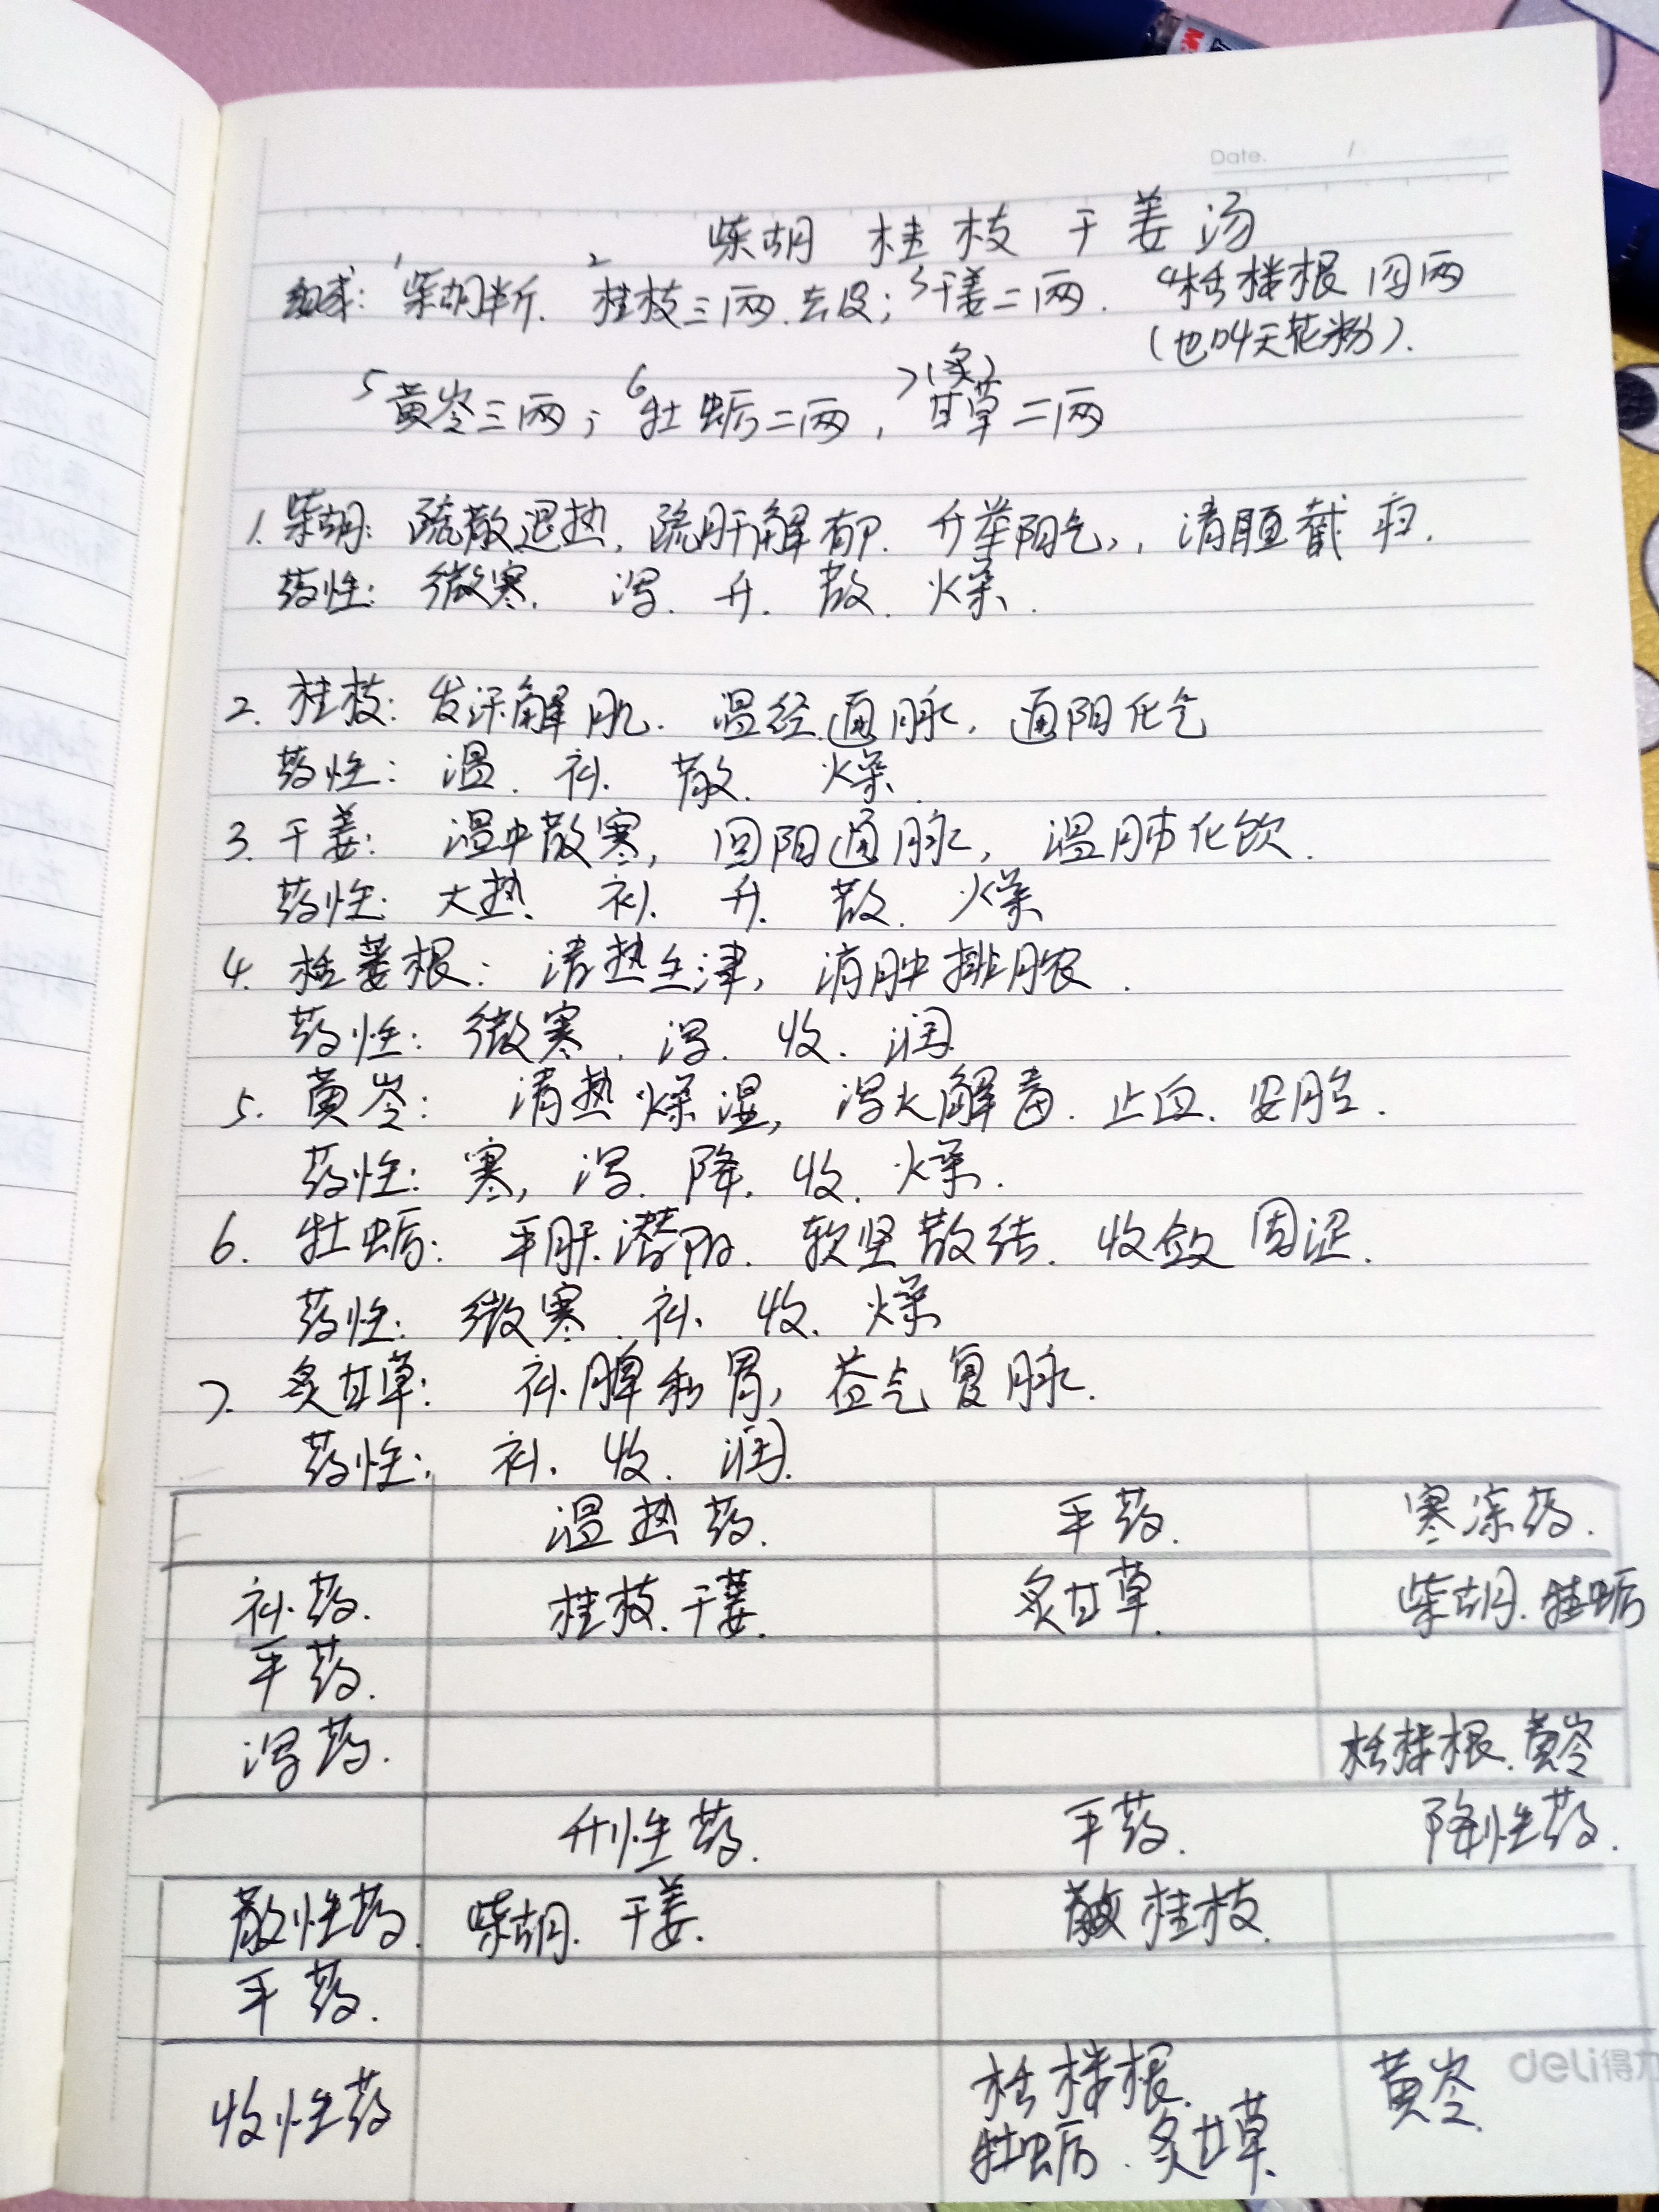 Date. /
柴胡 桂枝 干姜 汤
组成: 1柴胡半斤. 2桂枝三两.去皮; 3干姜二两. 4栝楼根 四两
(也叫天花粉).
5黄岑三两; 6牡蛎二两, 7(炙)甘草二两
1. 柴胡: 疏散退热, 疏肝解郁. 升举阳气,, 清胆截疟.
药性: 微寒. 泻. 升. 散. 燥.
2. 桂枝: 发汗解肌. 温经通脉, 通阳化气
药性: 温. 补. 散. 燥.
3. 干姜: 温中散寒, 回阳通脉, 温肺化饮.
药性: 大热. 补. 升. 散. 燥
4. 栝蒌根: 清热生津, 消肿排脓.
药性: 微寒. 泻. 收. 润.
5. 黄岑: 清热燥湿, 泻火解毒. 止血. 安胎.
药性: 寒, 泻. 降. 收. 燥.
6. 牡蛎: 平肝潜阳. 软坚散结. 收敛固涩.
药性: 微寒. 补. 收. 燥
7. 炙甘草: 补脾和胃, 益气复脉.
药性: 补. 收. 润.
温热药. 平药. 寒凉药.
补药. 桂枝.干姜. 炙甘草. 柴胡.牡蛎
平药.
泻药. 栝楼根.黄岑
升性药. 平药. 降性药.
散性药. 柴胡. 干姜. 桂枝.
平药.
收性药 栝楼根. 黄岑.
牡蛎. 炙甘草.
deli得力